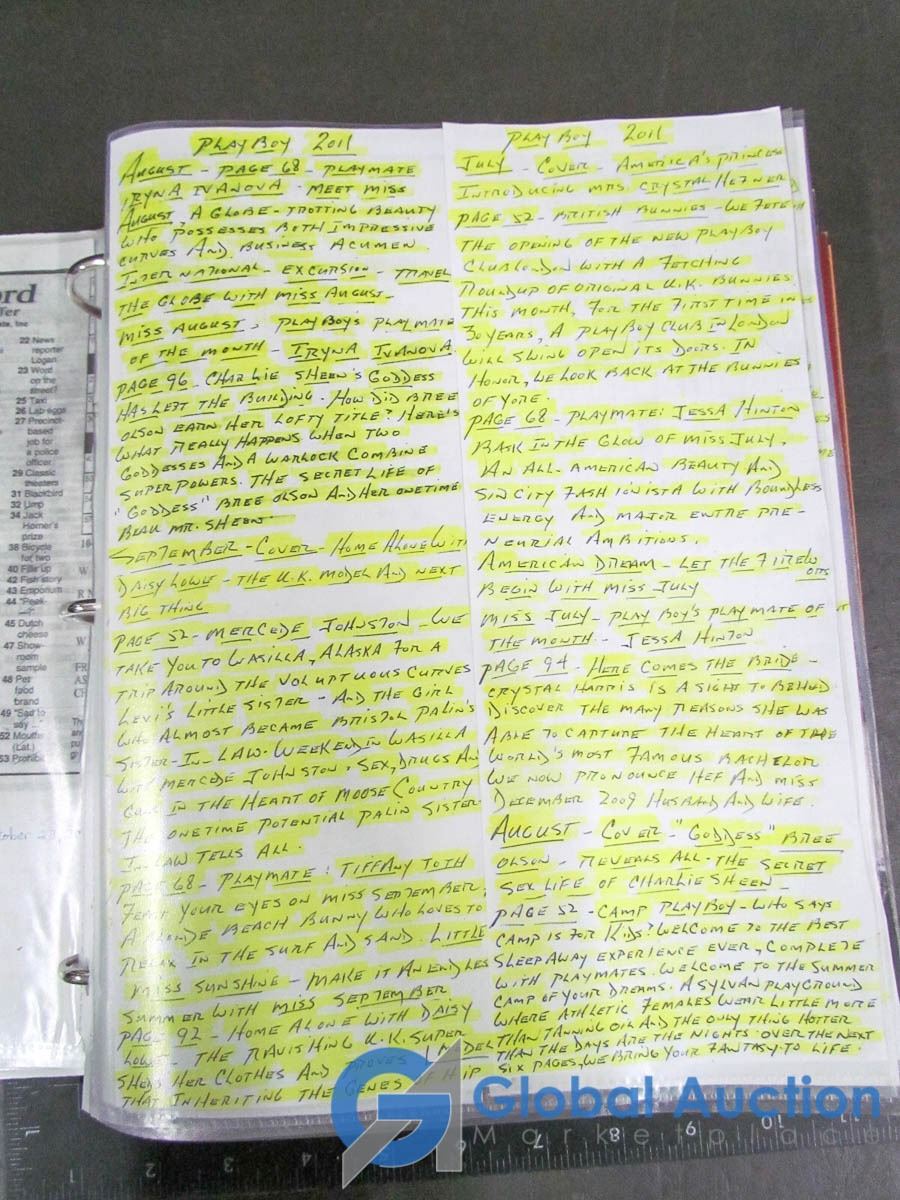 PLAYBOY 2011
AUGUST - PAGE 68 - PLAYMATE
IRYNA IVANOVA - MEET MISS
AUGUST, A GLOBE-TROTTING BEAUTY
WHO POSSESSES BOTH IMPRESSIVE
CURVES AND BUSINESS ACUMEN.
INTERNATIONAL - EXCURSION - TRAVEL
THE GLOBE WITH MISS AUGUST -
MISS AUGUST, PLAYBOY'S PLAYMATE
OF THE MONTH - IRYNA IVANOVA.
PAGE 96. CHARLIE SHEEN'S GODDESS
HAS LEFT THE BUILDING. HOW DID BREE
OLSON EARN HER LOFTY TITLE? HERE'S
WHAT REALLY HAPPENS WHEN TWO
GODDESSES AND A WARLOCK COMBINE
SUPER POWERS. THE SECRET LIFE OF
"GODDESS" BREE OLSON AND HER ONETIME
BEAU MR. SHEEN.
SEPTEMBER - COVER - HOME ALONE WITH
DAISY LOWE - THE U.K. MODEL AND NEXT
BIG THING
PAGE 52 - MERCEDE JOHNSTON - WE
TAKE YOU TO WASILLA, ALASKA FOR A
TRIP AROUND THE VOLUPTUOUS CURVES
LEVI'S LITTLE SISTER - AND THE GIRL
WHO ALMOST BECAME BRISTOL PALIN'S
SISTER-IN-LAW. WEEKEND IN WASILLA
WITH MERCEDE JOHNSTON. SEX, DRUGS AN
IN THE HEART OF MOOSE COUNTRY
THE ONETIME POTENTIAL PALIN SISTER-
IN-LAW TELLS ALL.
PAGE 68 - PLAYMATE: TIFFANY TOTH
FEAST YOUR EYES ON MISS SEPTEMBER,
A BLONDE BEACH BUNNY WHO LOVES TO
RELAX IN THE SURF AND SAND. LITTLE
MISS SUNSHINE - MAKE IT AN ENDLES
SUMMER WITH MISS SEPTEMBER
PAGE 92 - HOME ALONE WITH DAISY
LOWE - THE RAVISHING U.K. SUPER
SHEDS HER CLOTHES AND PROVES
THAT INHERITING THE GENES OF HIP
PLAYBOY 2011
JULY - COVER - AMERICA'S PRINCESS
INTRODUCING MRS. CRYSTAL HEFNER
PAGE 52 - BRITISH BUNNIES - WE FETE
THE OPENING OF THE NEW PLAYBOY
CLUB LONDON WITH A FETCHING
ROUNDUP OF ORIGINAL U.K. BUNNIES.
THIS MONTH, FOR THE FIRST TIME IN
30 YEARS, A PLAYBOY CLUB IN LONDON
WILL SWING OPEN ITS DOORS. IN
HONOR, WE LOOK BACK AT THE BUNNIES
OF YORE.
PAGE 68 - PLAYMATE: JESSA HINTON
BASK IN THE GLOW OF MISS JULY,
AN ALL-AMERICAN BEAUTY AND
SIN CITY FASHIONISTA WITH BOUNDLESS
ENERGY AND MAJOR ENTRE PRE-
NEURIAL AMBITIONS.
AMERICAN DREAM - LET THE FIREW
ORKS
BEGIN WITH MISS JULY
MISS JULY - PLAYBOY'S PLAYMATE OF
THE MONTH - JESSA HINTON
PAGE 94 - HERE COMES THE BRIDE -
CRYSTAL HARRIS IS A SIGHT TO BEHOLD.
DISCOVER THE MANY REASONS SHE WAS
ABLE TO CAPTURE THE HEART OF THE
WORLD'S MOST FAMOUS BACHELOR
WE NOW PRONOUNCE HEF AND MISS
DECEMBER 2009 HUSBAND AND WIFE.
AUGUST - COVER - "GODDESS" BREE
OLSON - REVEALS ALL - THE SECRET
SEX LIFE OF CHARLIE SHEEN -
PAGE 52 - CAMP PLAYBOY - WHO SAYS
CAMP IS FOR KIDS? WELCOME TO THE BEST
SLEEPAWAY EXPERIENCE EVER, COMPLETE
WITH PLAYMATES. WELCOME TO THE SUMMER
CAMP OF YOUR DREAMS. A SYLVAN PLAYGROUND
WHERE ATHLETIC FEMALES WEAR LITTLE MORE
THAN TANNING OIL AND THE ONLY THING HOTTER
THAN THE DAYS ARE THE NIGHTS. OVER THE NEXT
SIX PAGES, WE BRING YOUR FANTASY TO LIFE.
22 News
reporter
Logan
23 Word
on the
street?
25 Taxi
26 Lab eggs
27 Precinct-
based
job for
a police
officer
29 Classic
theaters
31 Blackbird
32 Limp
34 Jack
Horner's
prize
38 Bicycle
for two
40 Fills up
42 Fish story
43 Emporium
44 "Peek-
45 Dutch
cheese
47 Show-
room
sample
48 Pet
food
brand
49 "Sad to
say ..."
52 Mouths
(Lat.)
53 Prohibit
Global Auction
Marketplace
1 2 3 4 5 6 7 8 9 10 11